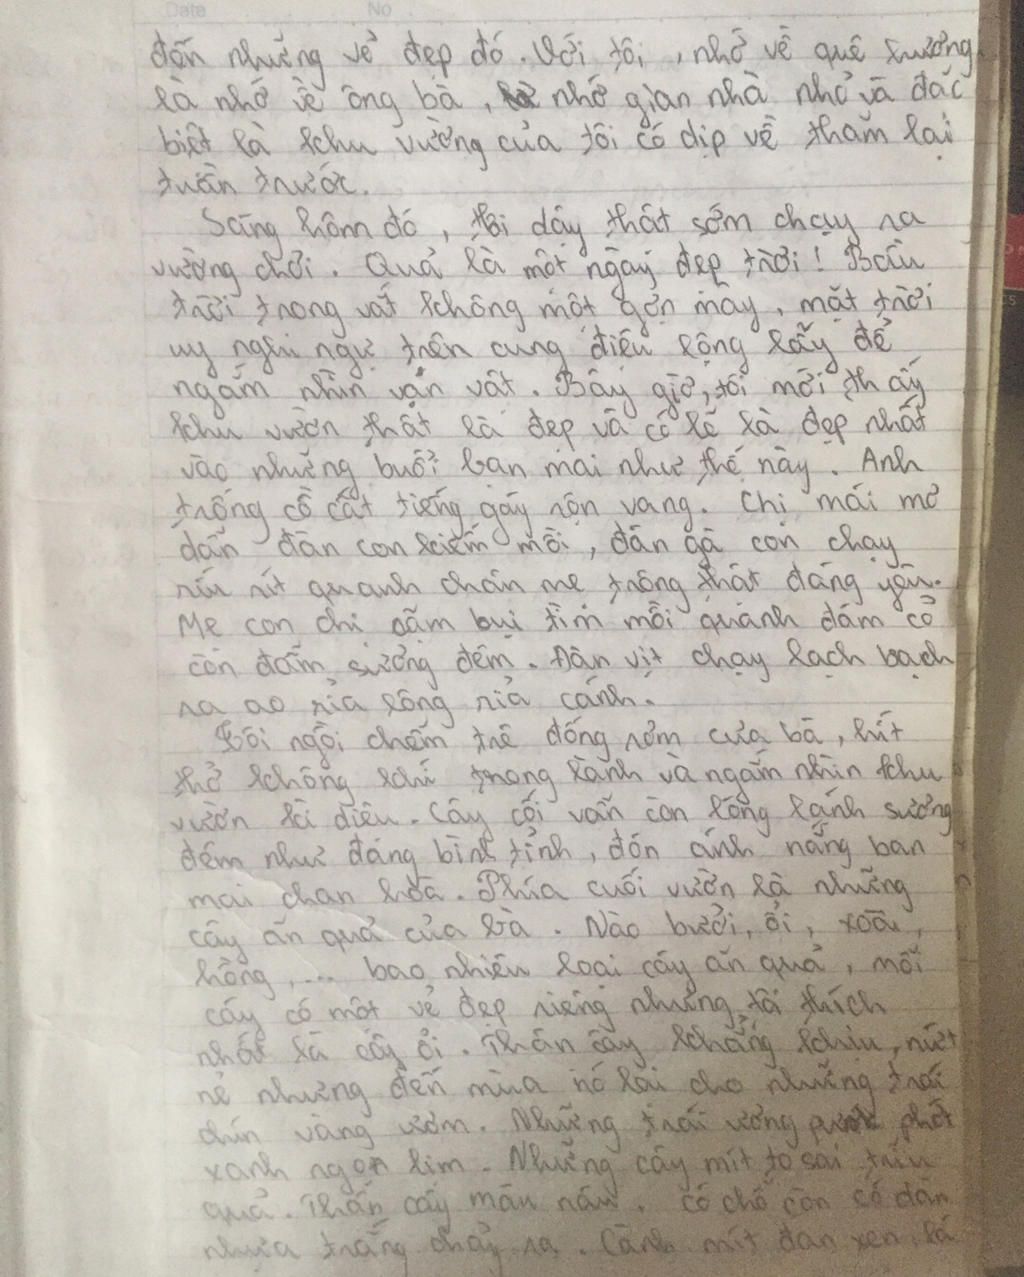 Date No
đến những vẻ đẹp đó. Với tôi, nhớ về quê hương
là nhớ về ông bà, nhớ gian nhà nhỏ và đặc
biệt là khu vường của tôi có dịp về thăm lại
tuần trước.
Sáng hôm đó, tôi dậy thật sớm chạy ra
vường chơi. Quả là một ngày đẹp trời! Bầu
trời trong vắt không một gợn mây, mặt trời
uy nghi ngự trên cung điện lộng lẫy để
ngắm nhìn vạn vật. Bây giờ, tôi mới thấy
khu vườn thật là đẹp và có lẽ là đẹp nhất
vào những buổi ban mai như thế này. Anh
trống cồ cất tiếng gáy rộn vang. Chị mái mơ
dẫn đàn con kiếm mồi, đàn gà con chạy
ríu rít quanh chân mẹ trông thật đáng yêu.
Mẹ con chị cắm bụi tìm mồi quanh đám cỏ
còn đẫm sương đêm. Đàn vịt chạy lạch bạch
ra ao rỉa lông rỉa cánh.
Tôi ngồi chễm trệ đống rơm của bà, hít
thở không khí trong lành và ngắm nhìn khu
vườn kì diệu. Cây cối vẫn còn lóng lánh sương
đêm như đang bình tỉnh, đón ánh nắng ban
mai chan hòa. Phía cuối vườn là những
cây ăn quả của bà. Nào bưởi, ổi, xoài,
hồng, ... bao nhiêu loại cây ăn quả, mỗi
cây có một vẻ đẹp riêng nhưng tôi thích
nhất là cây ổi. Thân cây khẳng khiu, nứt
nẻ nhưng đến mùa nó lại cho những trái
chín vàng ươm. Những trái ương phớt
xanh ngon lim. Những cây mít to sai trĩu
quả. Thân cây màu nâu, có chỗ còn có dàn
nhựa trắng chảy ra. Cành mít đan xen, lá